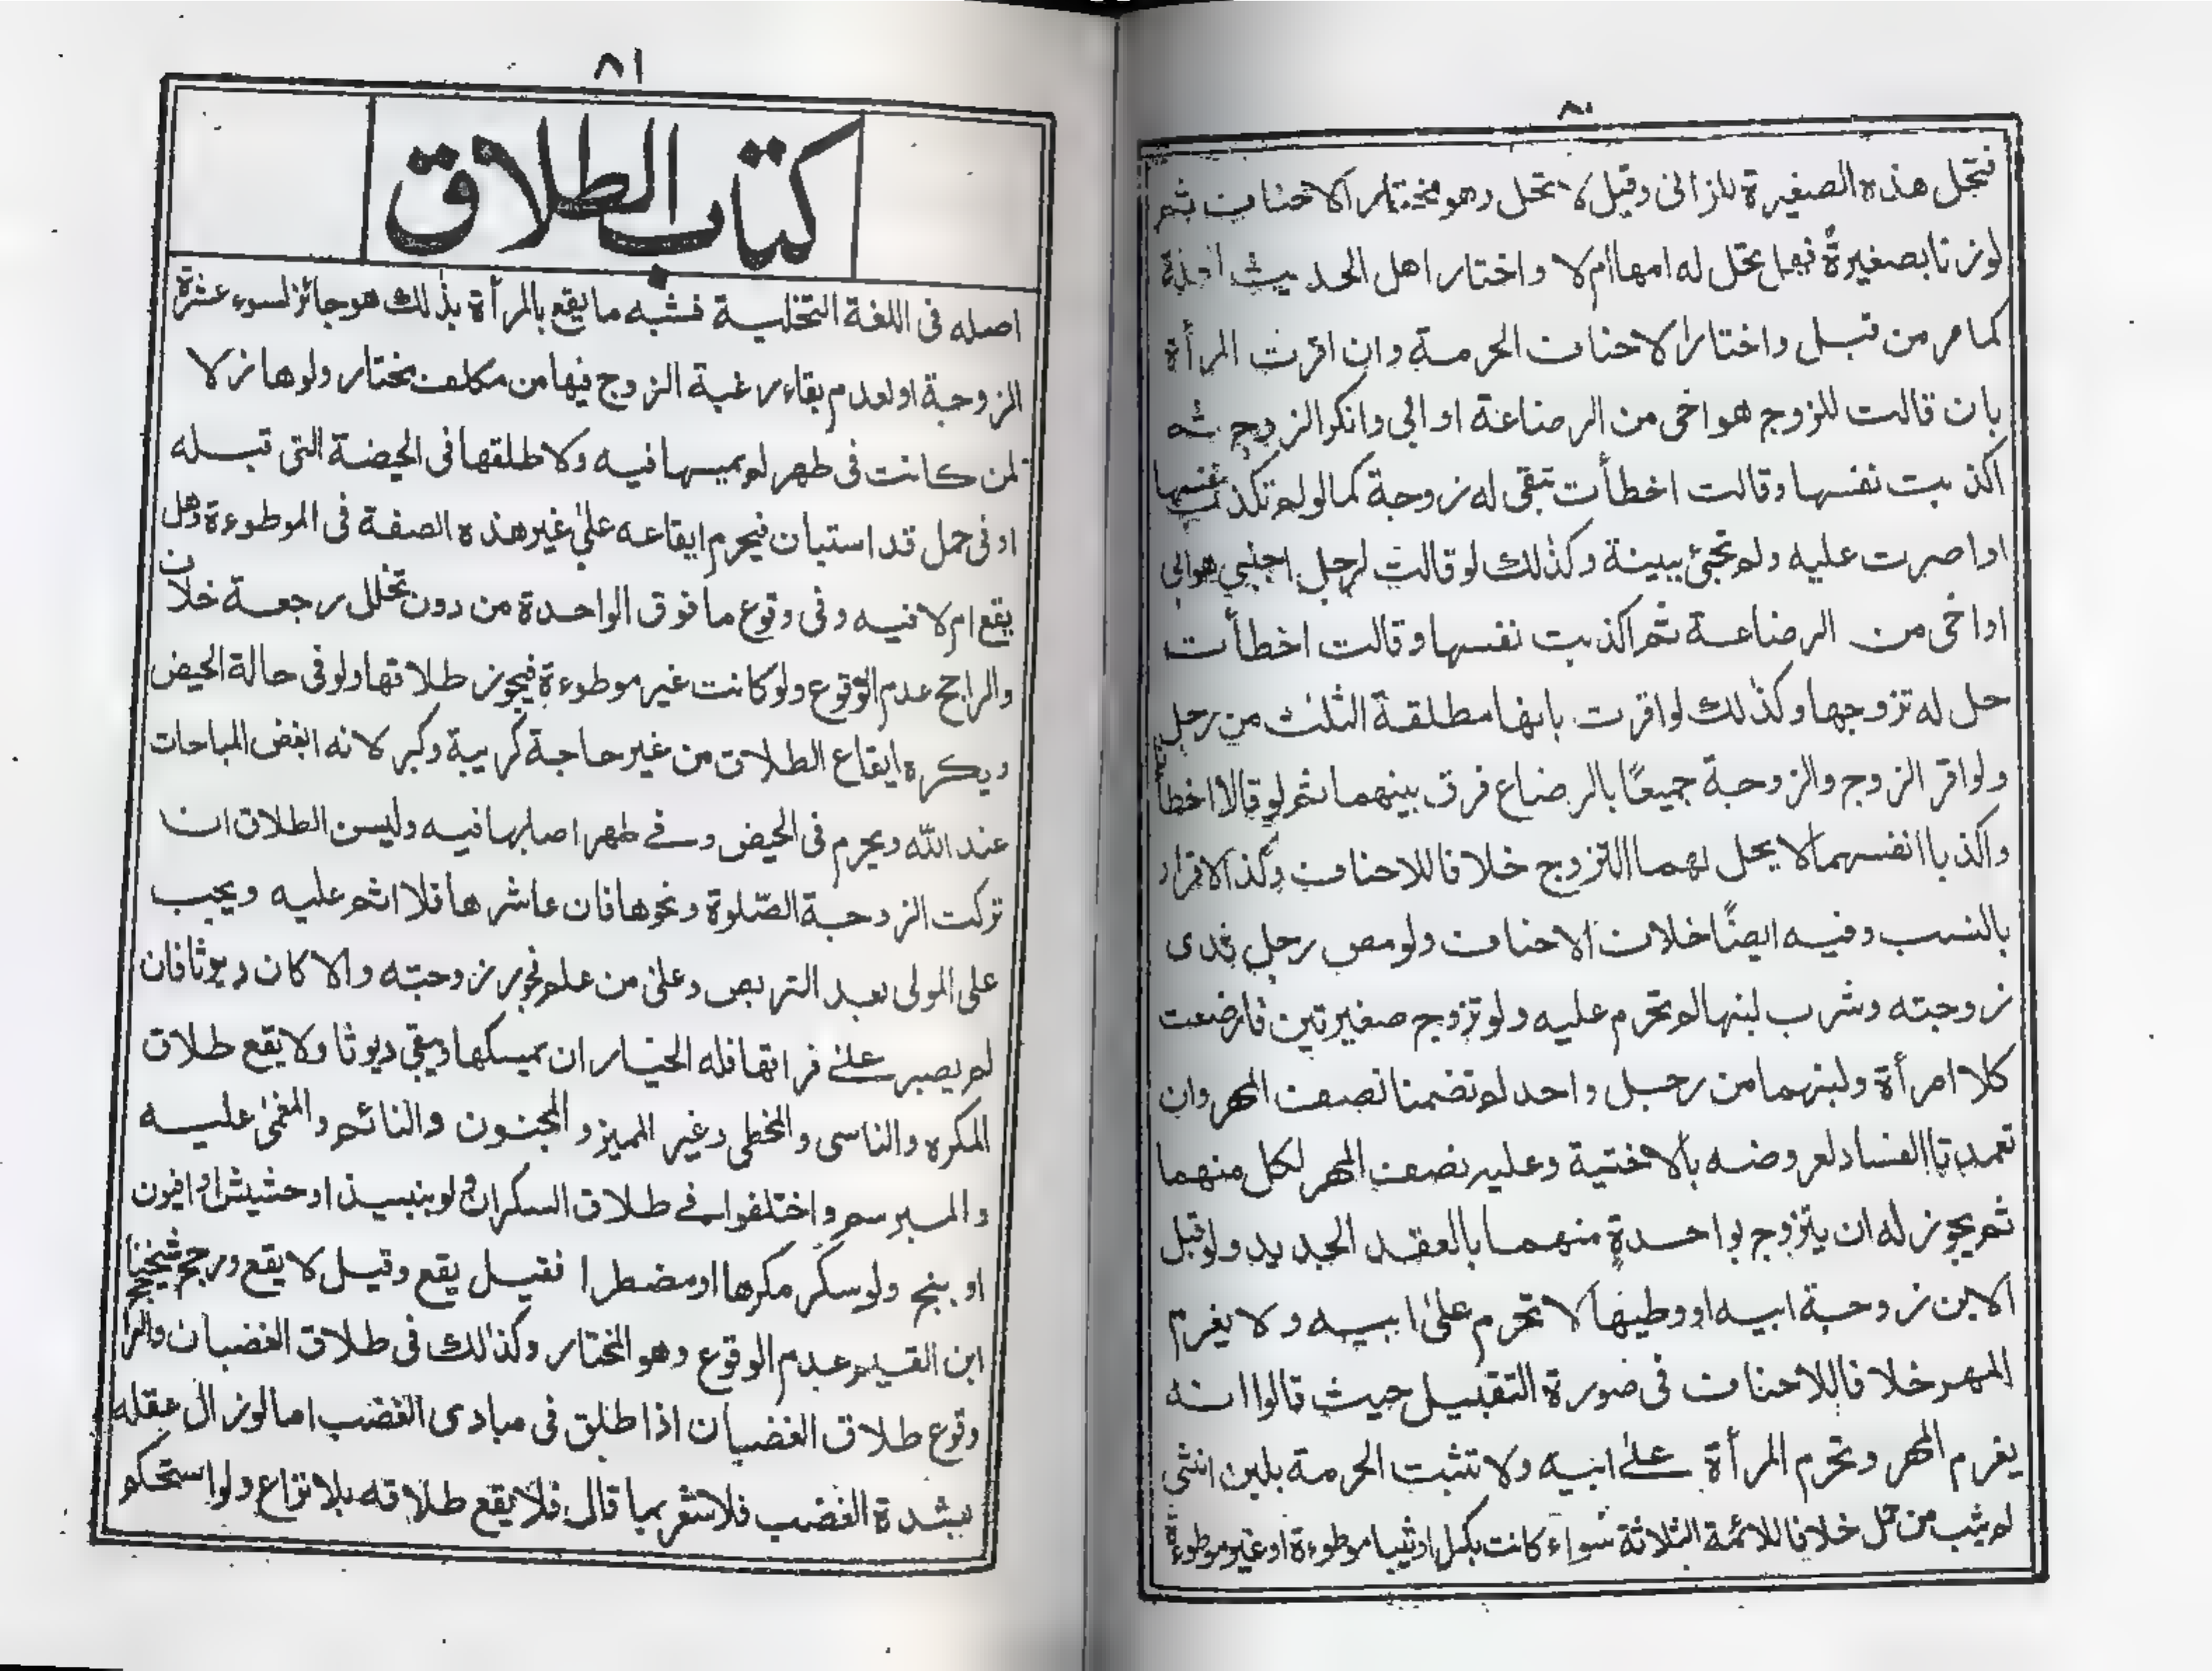 ٨٠
فتحل هذه الصغيرة للزانى وقيل لا تحل وهو مختار الاحناف ثم
لو زنا بصغيرة فهل تحل له امها أم لا واختار اهل الحديث
كما مر من قبل واختار الاحناف الحرمة وان اقرت المرأة
بان قالت للزوج هو اخى من الرضاعة او ابى وانكر الزوج ثم
اكذبت نفسها وقالت اخطأت تبقى له زوجة كما لو لم تكذب نفسها
او اصرت عليه ولم تجئ ببينة وكذلك لو قالت لرجل اجنبى هو ابى
او اخى من الرضاعة ثم اكذبت نفسها وقالت اخطأت
حل له تزوجها وكذلك لو اقرت بانها مطلقة الثلث من رجل
ولو اقر الزوج والزوجة جميعًا بالرضاع فرق بينهما ثم لو قالا اخطأنا
واكذبا انفسهما لا يحل لهما التزوج خلافا للاحناف وكذا الاقرار
بالنسب وفيه ايضًا خلاف الاحناف ولو مص رجل ثدى
زوجته وشرب لبنها لم تحرم عليه ولو تزوج صغيرتين فارضعت
كلا امرأة ولبنهما من رجل واحد لم تضمنا نصف المهر وان
تعمدتا الفساد لعروضه بالاختية وعليه نصف المهر لكل منهما
ثم يجوز له ان يتزوج بواحدةٍ منهما بالعقد الجديد ولو قبل
الابن زوجة ابيه او وطيها لا تحرم على ابيه ولا يغرم
المهر خلافا للاحناف فى صورة التقبيل حيث قالوا انه
يغرم المهر وتحرم المرأة على ابيه ولا تثبت الحرمة بلبن انثى
لم يثب من حمل خلافا للائمة الثلاثة سواء كانت بكرا او ثيبا موطوءة او غير موطوءة
٨١
كتاب الطلاق
اصله فى اللغة التخلية فشبه ما يقع بالمرأة بذلك هو جائز لسوء عشرة
الزوجة او لعدم بقاء رغبة الزوج فيها من مكلف مختار ولو هازلا
لمن كانت فى طهر لم يمسها فيه ولا طلقها فى الحيضة التى قبله
او فى حمل قد استبان فيحرم ايقاعه على غير هذه الصفة فى الموطوءة وهل
يقع ام لا فيه وفى وقوع ما فوق الواحدة من دون تخلل رجعة خلاف
والراجح عدم الوقوع ولو كانت غير موطوءة فيجوز طلاقها ولو فى حالة الحيض
ويكره ايقاع الطلاق من غير حاجة كريبة وكبر لانه ابغض المباحات
عند الله ويحرم فى الحيض وفى طهر اصابها فيه وليسن الطلاق ان
تركت الزوجة الصّلوة ونحوها فان عاشرها فلا اثم عليه ويجب
على المولى بعد التربص وعلى من علم فجور زوجته والا كان ديوثا فان
لم يصبر على فراقها فله الخيار ان يمسكها ويبقى ديوثا ولا يقع طلاق
المكره والناسى والمخطى وغير المميز والمجنون والنائم والمغمى عليه
والمبرسم واختلفوا فى طلاق السكران ولو بنبيذ او حشيش او افيون
او بنج ولو سكر مكرها او مضطرا فقيل يقع وقيل لا يقع ورجح شيخنا
ابن القيم عدم الوقوع وهو المختار وكذلك فى طلاق الغضبان والراجح
وقوع طلاق الغضبان اذا طلق فى مبادى الغضب اما لو زال عقله
بشدة الغضب فلا شعر بما قال فلا يقع طلاقه بلا نزاع ولو استحكم